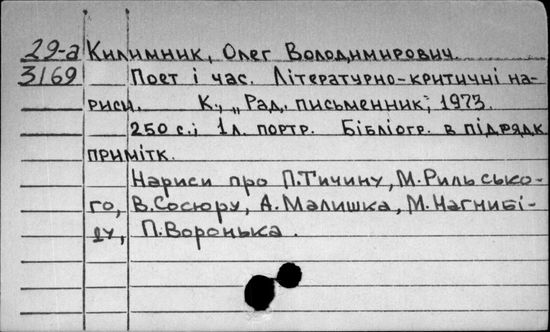 29-а Килимник, Олег Володимирович.
3169 Поет і час. Літературно-критичні на-
риси. К., „Рад. письменник", 1973.
250 с.; 1л. портр. Бібліогр. в підрядк
примітк.
Нариси про П.Тичину, М.Рильсько-
го, В.Сосюру, А.Малишка, М.Нагнибі-
ду, П.Воронька.